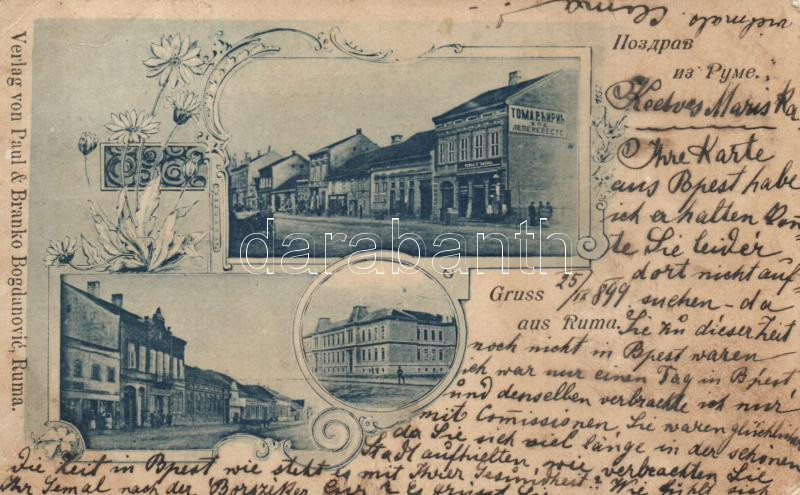 Verlag von Paul & Branko Bogdanović, Ruma.
Поздрав
из Руме.
ТОМА Р. ЋИРИЋ
КОД
ЛЕПЕ НЕВЕСТЕ
darabanth.com
Gruss
aus Ruma.
25/IX 899
Kedves Mariska
Ihre Karte
aus Bpest habe
ich erhalten kon̄
te Sie leider
dort nicht auf
suchen - da
Sie zu dieser Zeit
noch nicht in Bpest waren
ich war nur einen Tag in Bpest
und denselben verbrachte ich nur
mit Com̄issionen, Sie waren glücklicher
da Sie sich viel länge in der schönen
Stadt aufhielten, wie verbrachten Sie
die Zeit in Bpest wie steht es mit Ihrer Gesundheit?